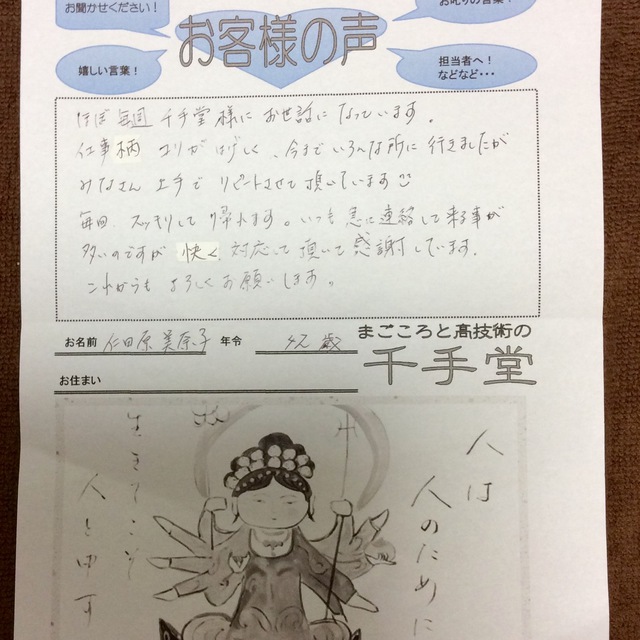 お聞かせください！
お叱りの言葉！
お客様の声
嬉しい言葉！
担当者へ！
などなど・・・
ほぼ毎週 千手堂様に お世話に なっています。
仕事柄 コリがはげしく、今まで いろんな所に 行きましたが
みなさん 上手で リピートさせて 頂いています
毎回、スッキリして 帰れます。いつも 急に連絡して来る事が
多いのですが 快く 対応して 頂いて 感謝しています。
これからも よろしくお願いします。
お名前 仁田原 美奈子 年令 歳
お住まい
まごころと高技術の
千手堂
人は
人のために
生きてこそ
人と申す